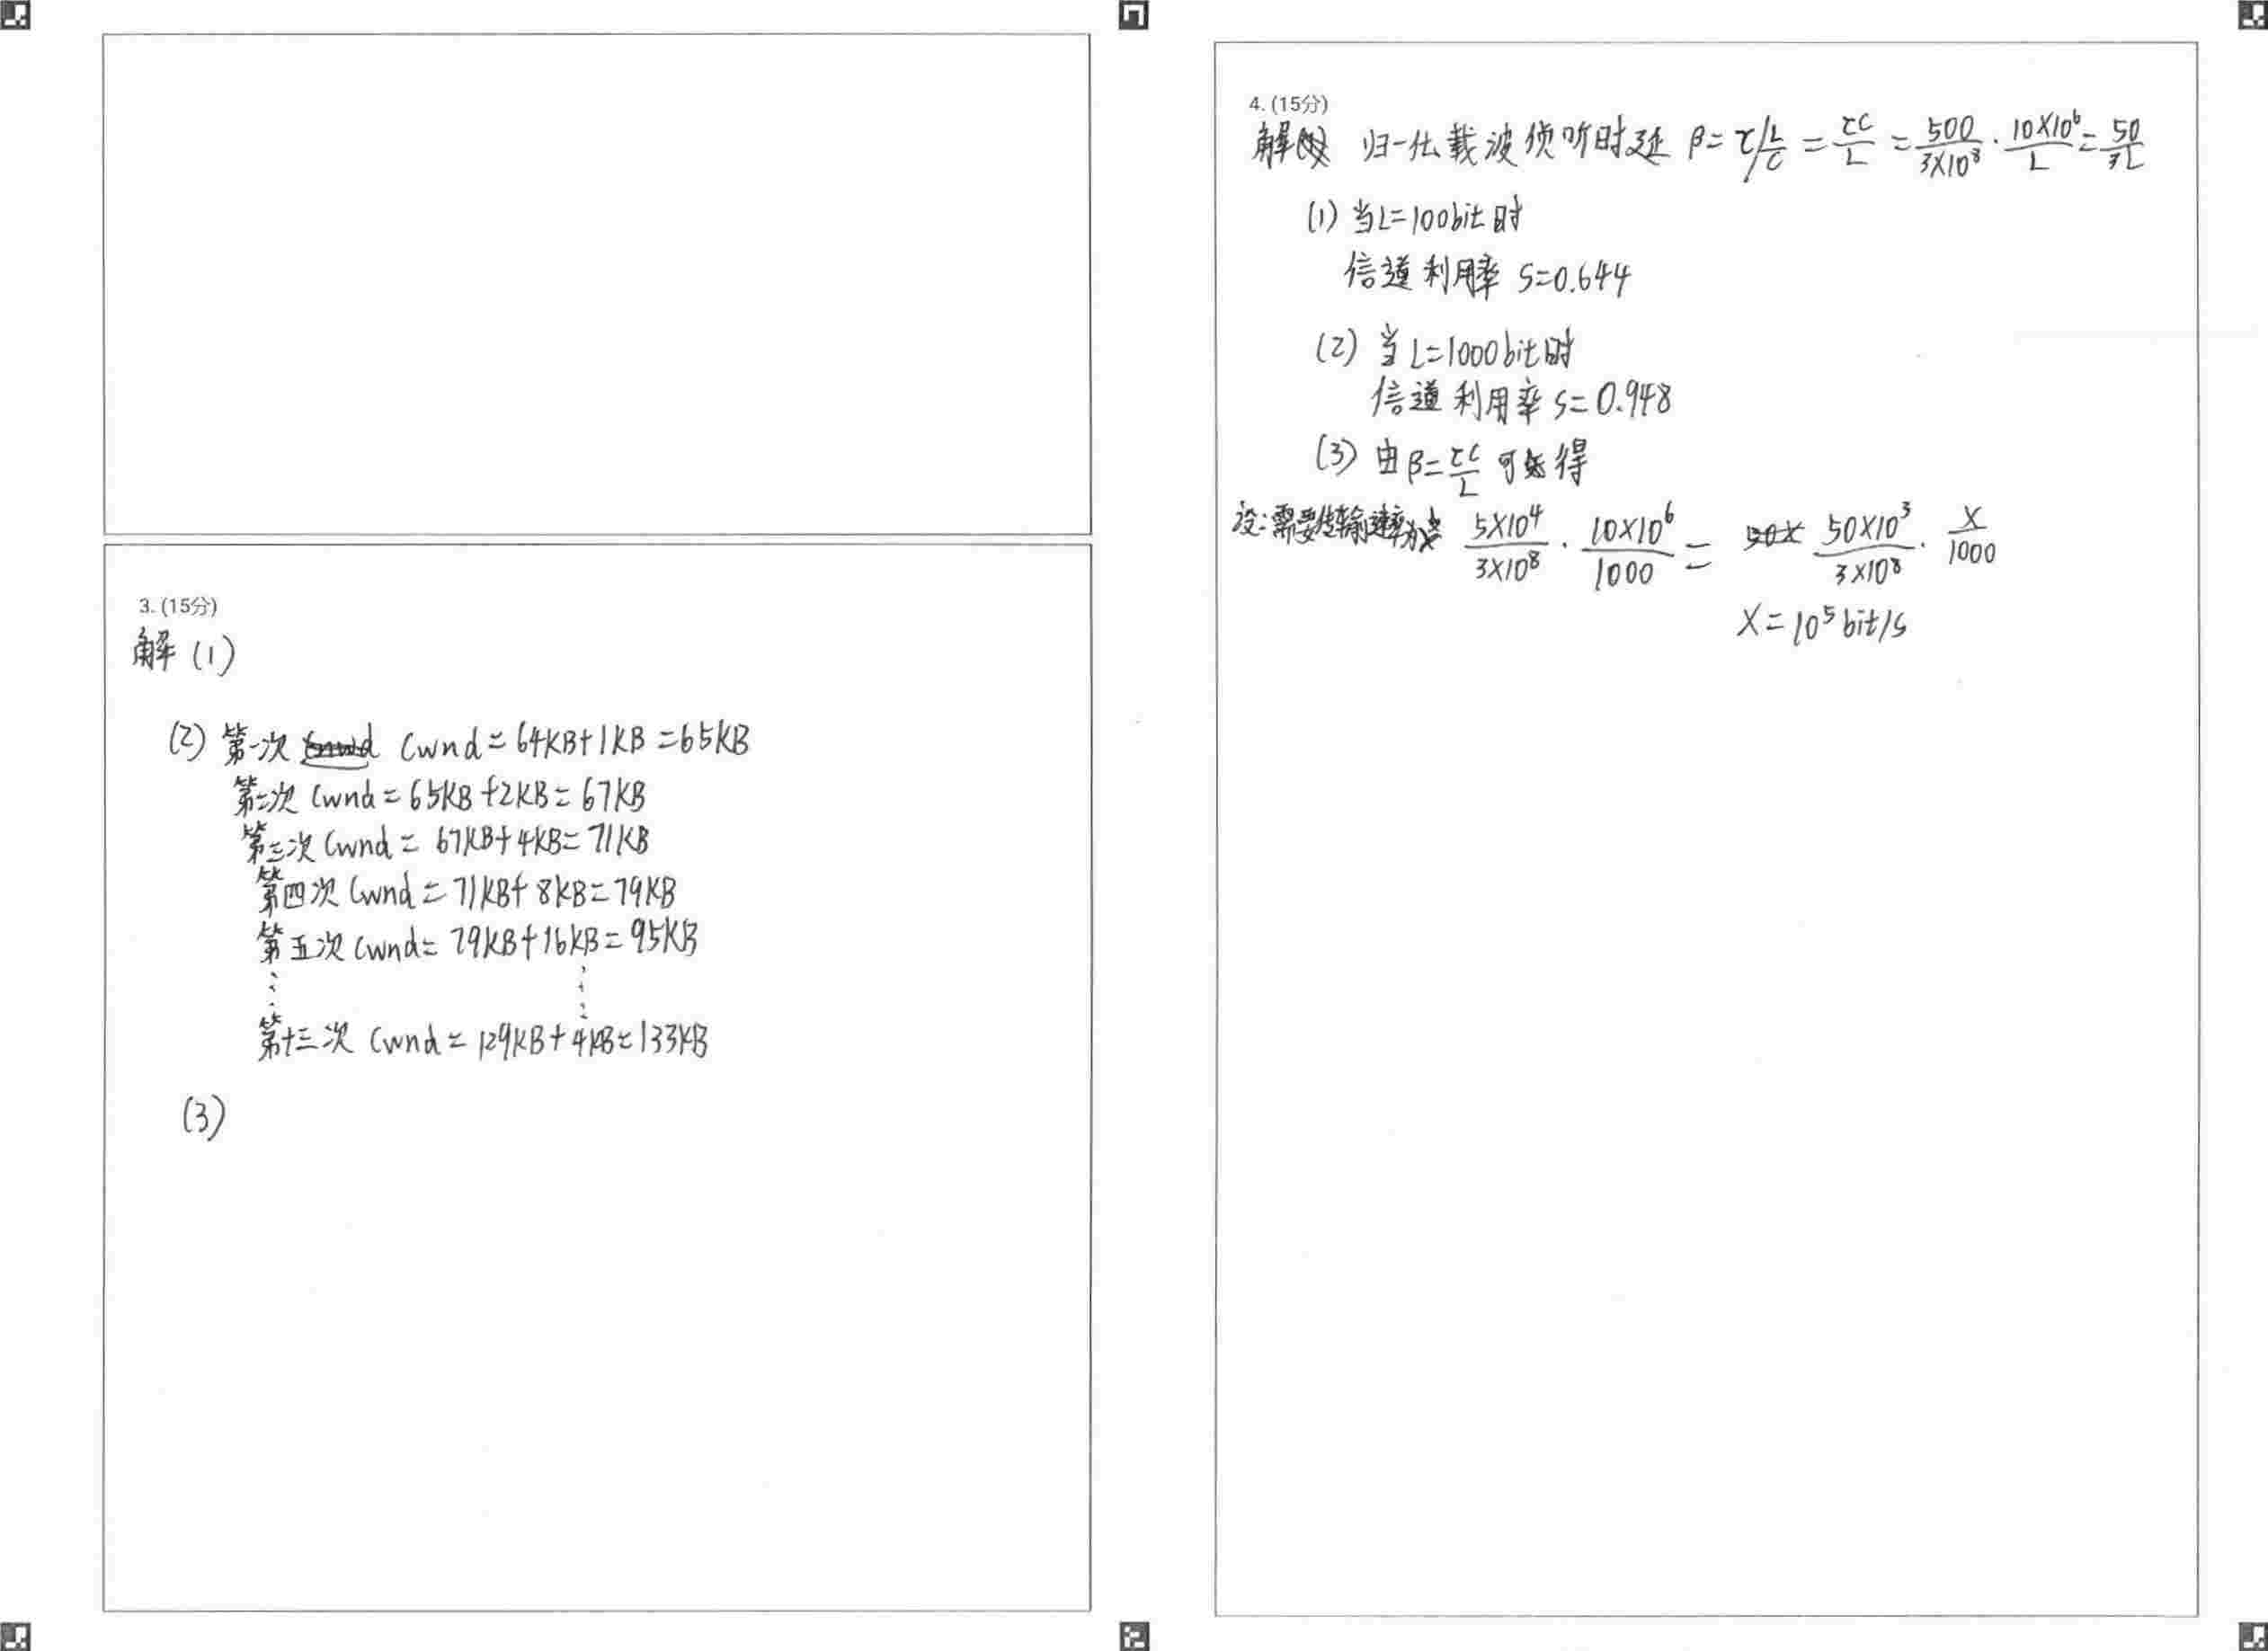 3. (15分)
解 (1)
(2) 第一次 cwnd = 64KB+1KB =65KB
第二次 cwnd = 65KB+2KB = 67KB
第三次 cwnd = 67KB+4KB= 71KB
第四次 cwnd = 71KB+8KB=79KB
第五次 cwnd= 79KB+16KB=95KB
⋮ ⋮
第十三次 cwnd = 129KB+4KB=133KB
(3)
4. (15分)
解 归一化载波侦听时延 β= τ/(L/C) = τC/L = 500/(3×10⁸) · (10×10⁶)/L = 50/(3L)
(1) 当L=100bit时
信道利用率 S=0.644
(2) 当L=1000bit时
信道利用率 S=0.948
(3) 由 β= τC/L 可得
设:需要传输速率为x (5×10⁴)/(3×10⁸) · (10×10⁶)/1000 = (50×10³)/(3×10⁸) · x/1000
x=10⁵bit/s